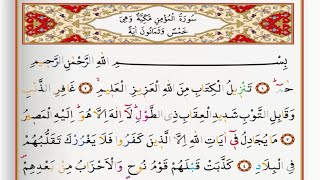 سُورَةُ الْمُؤْمِنِ مَكِّيَّةٌ وَهِيَ
خَمْسٌ وَثَمَانُونَ اٰيَةً
بِسْمِ اللّٰهِ الرَّحْمٰنِ الرَّحِيمِ
حٰمٓ ﴿١﴾ تَنْزِيلُ الْكِتَابِ مِنَ اللّٰهِ الْعَزِيزِ الْعَلِيمِ ﴿٢﴾ غَافِرِ الذَّنْبِ
وَقَابِلِ التَّوْبِ شَدِيدِ الْعِقَابِ ذِي الطَّوْلِ لَٓا اِلٰهَ اِلَّا هُوَ اِلَيْهِ الْمَصِيرُ
﴿٣﴾ مَا يُجَادِلُ فِٓي اٰيَاتِ اللّٰهِ اِلَّا الَّذِينَ كَفَرُوا فَلَا يَغْرُرْكَ تَقَلُّبُهُمْ
فِي الْبِلَادِ ﴿٤﴾ كَذَّبَتْ قَبْلَهُمْ قَوْمُ نُوحٍ وَالْاَحْزَابُ مِنْ بَعْدِهِمْ